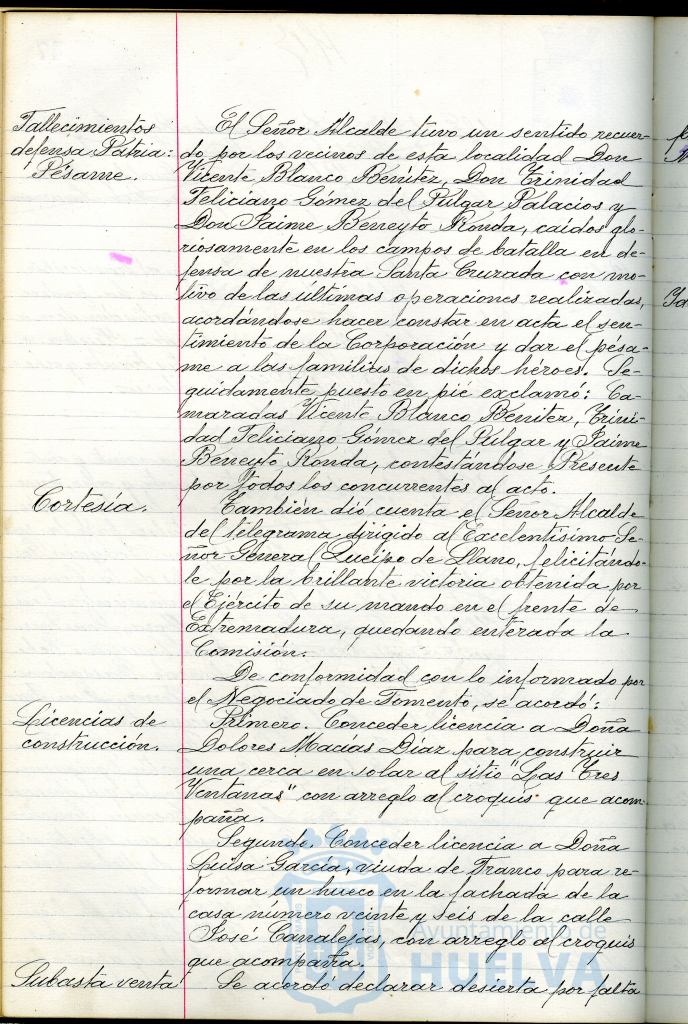 Fallecimientos
defensa Pátria:
Pésame.
El Señor Alcalde tuvo un sentido recuer-
do por los vecinos de esta localidad Don
Vicente Blanco Benítez, Don Trinidad
Feliciano Gómez del Pulgar Palacios y
Don Jaime Beneyto Ronda, caídos glo-
riosamente en los campos de batalla en de-
fensa de nuestra Santa Cruzada con mo-
tivo de las últimas operaciones realizadas,
acordándose hacer constar en acta el sen-
timiento de la Corporación y dar el pésa-
me a las familias de dichos héroes. Se-
guidamente puesto en pié exclamó: Ca-
maradas Vicente Blanco Benitez, Trini-
dad Feliciano Gómez del Pulgar y Jaime
Beneyto Ronda, contestándose Presente
por todos los concurrentes al acto.
Cortesía.
También dió cuenta el Señor Alcalde
del telegrama dirigido al Excelentísimo Se-
ñor General Queipo de Llano, felicitándo-
le por la brillante victoria obtenida por
el Ejército de su mando en el frente de
Extremadura, quedando enterada la
Comisión.
De conformidad con lo informado por
el Negociado de Fomento, se acordó:
Licencias de
construcción.
Primero. Conceder licencia a Doña
Dolores Macías Diaz para construir
una cerca en solar al sitio "Las Tres
Ventanas" con arreglo al croquis que acom-
paña.
Segundo. Conceder licencia a Doña
Luisa García, viuda de Franco para re-
formar un hueco en la fachada de la
casa número veinte y seis de la calle
José Canalejas, con arreglo al croquis
que acompaña.
Subasta venta
Se acordó declarar desierta por falta
Ayuntamiento de
HUELVA